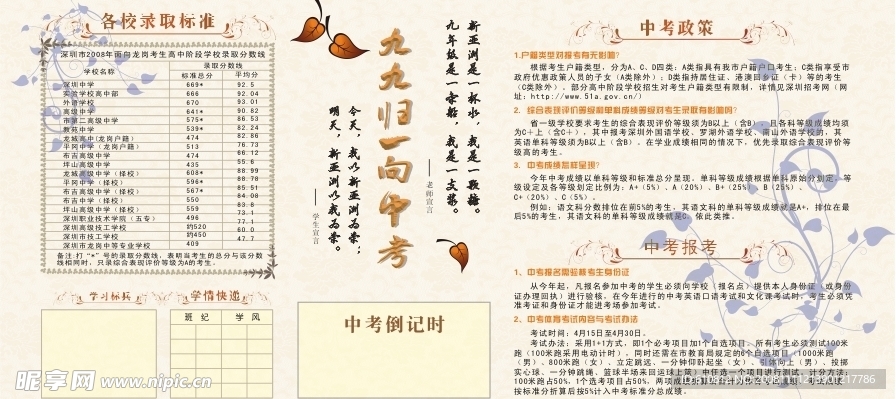 各校录取标准
深圳市2008年面向龙岗考生高中阶段学校录取分数线
学校名称 录取分数线
标准总分 平均分
深圳中学 669* 92.5
实验学校高中部 666* 92.04
外语学校 670 93.01
高级中学 641* 90.82
市第二高级中学 575* 86.53
教苑中学 539* 82.24
龙城高中(龙岗户籍) 474 82.86
平冈中学(龙岗户籍) 513 76.73
布吉高级中学 474 66.12
坪山高级中学 435 55.6
龙城高级中学(择校) 608* 88.99
平冈高级中学(择校) 596* 88.78
布吉中学 567* 85.51
布吉高级中学(择校) 550 84.08
坪山高级中学(择校) 559 83.8
深圳职业技术学院(五专) 496 73.1
深圳高级技工学校 约520 77.1
深圳市技工学校 约450 60.0
深圳市龙岗中等专业学校 409 47.7
备注:打“*”号的录取分数线，表明高考生的总分与该分数线相同时，只录综合表现评价等级为A的考生。
学习标兵
学情快递
班 纪 学 风
九九归一向中考
新亚洲是一杯水，我是一颗糖。
九年级是一条船，我是一支桨。
——老师宣言
今天，我以新亚洲为荣；
明天，新亚洲以我为荣。
——学生宣言
中考倒记时
中考政策
1.户籍类型对报考有无影响?
根据考生户籍类型，分为A、C、D四类：A类指具有我市户籍户口考生；C类指享受市
政府优惠政策人员的子女（A类除外）；D类指持居住证、港澳回乡证（卡）等的考生
（C类除外）。部分高中阶段学校招生对考生户籍类型有限制，详情见深圳招考网（网
址：http://www.51a.gov.cn/）
2、综合表现评价等级和单科成绩等级对考生录取有影响吗?
省一级学校要求考生的综合表现评价等级须为B以上（含B），且各科等级成绩均须
为C+以上（含C+），其中报考深圳外国语学校、罗湖外语学校、南山外语学校的，其
英语单科等级须为B以上（含B）。在学业成绩相同的情况下，优先录取综合表现评价等
级高的考生。
3、中考成绩怎样呈现?
今年中考成绩以单科等级和标准总分呈现。单科等级成绩根据单科原始分划定。等
级设定及各等级划定比例为：A+（5%）、A（20%）、B+（25%）、B（25%）、
C+（20%）、C（5%）。
例如：语文科分数排位在前5%的考生，其语文科的单科等级成绩就是A+，排位在最
后5%的考生，其语文科的单科等级成绩就是C。依此类推。
中考报考
1、中考报名需验核考生身份证
从今年起，凡报名参加中考的学生必须向学校（报名点）提供本人身份证（或身份
证办理回执）进行验核。在今年进行的中考英语口语考试和文化课考试时，考生必须凭
准考证和身份证才能进考场参加考试。
2、中考体育考试内容与考试办法
考试时间：4月15日至4月30日。
考试办法：采用1+1方式，即1个必考项目加1个自选项目。所有考生必须测试100米
跑（100米跑采用电动计时），同时还需在市教育局规定的6个自选项目（1000米跑
（男）、800米跑（女）、立定跳远、一分钟仰卧起坐（女）、引体向上（男）、投掷
实心球、一分钟跳绳、篮球半场来回运球上篮）中任选一个项目进行测试。计分方法：
100米跑占50%，1个选考项目占50%，
按标准分折算后按5%计入中考标准分总成绩。
昵享网 www.nipic.cn